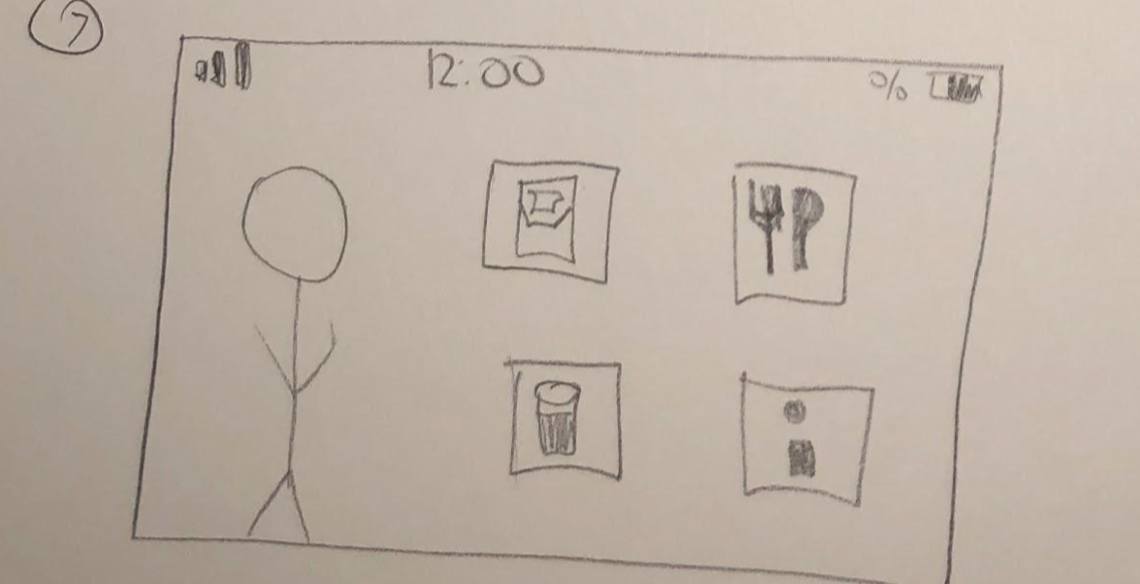 7
12:00
%